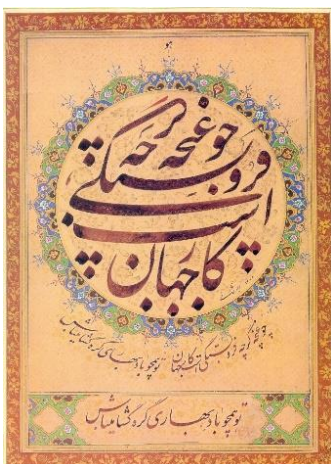 هو
چو غنچه گر چه فروبستگی است کار جهان
چو غنچه گر چه فروبستگی است کار جهان تو همچو باد بهاری گره گشا میباش
تو همچو باد بهاری گره گشا میباش